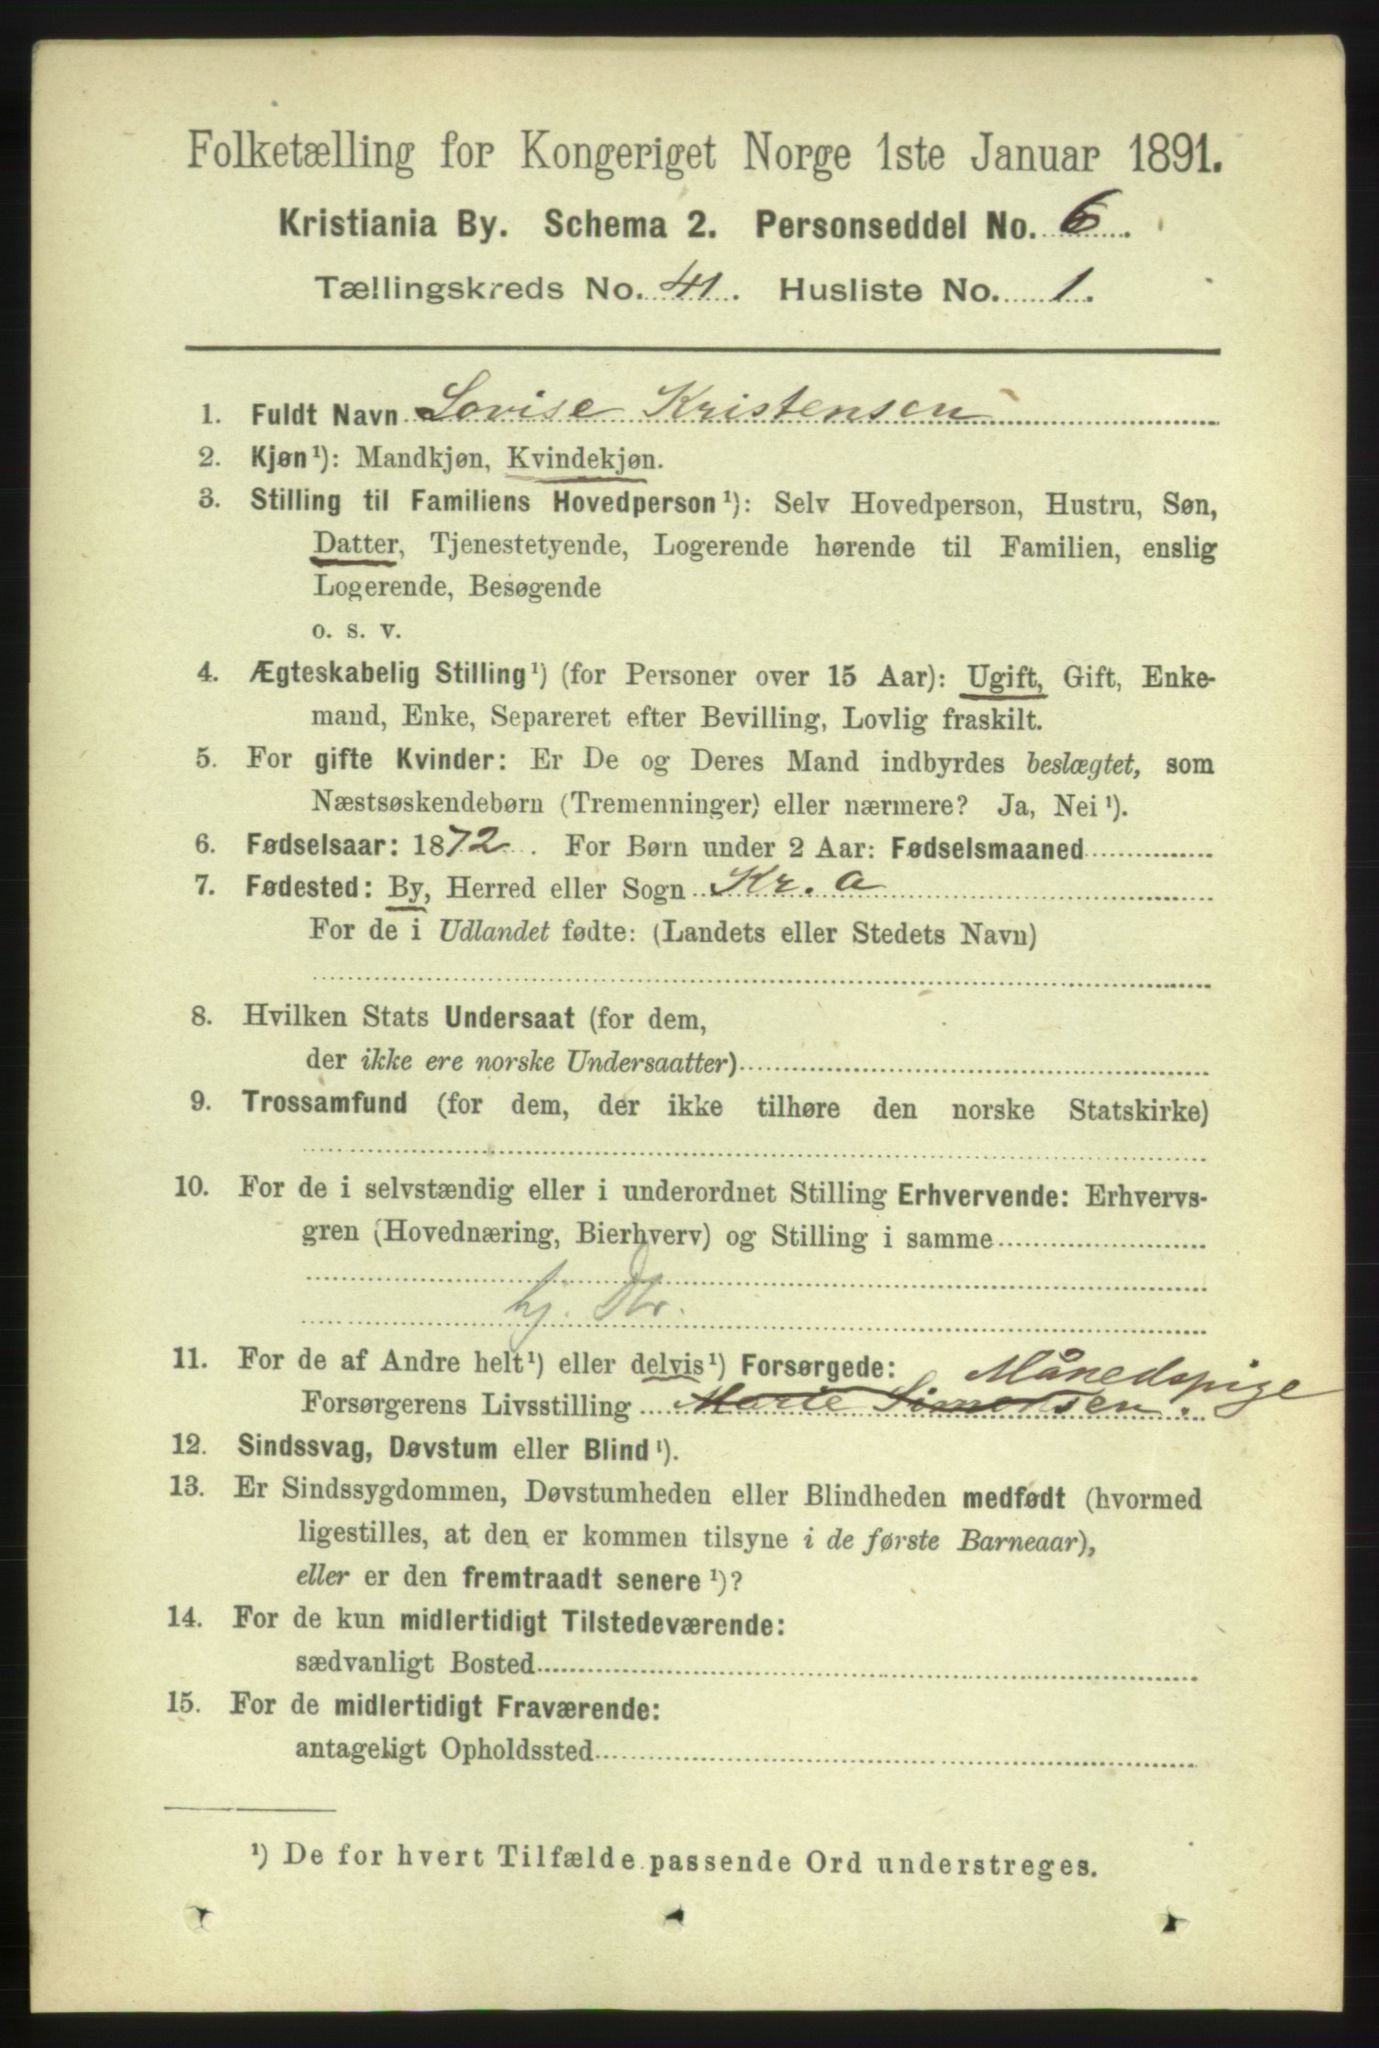 Folketælling for Kongeriget Norge 1ste Januar 1891.
Kristiania By. Schema 2. Personseddel No. 6.
Tællingskreds No. 41. Husliste No. 1.
1. Fuldt Navn Lovise Kristensen
2. Kjøn¹): Mandkjøn, Kvindekjøn.
3. Stilling til Familiens Hovedperson¹): Selv Hovedperson, Hustru, Søn,
Datter, Tjenestetyende, Logerende hørende til Familien, enslig
Logerende, Besøgende
o. s. v.
4. Ægteskabelig Stilling¹) (for Personer over 15 Aar): Ugift, Gift, Enke-
mand, Enke, Separeret efter Bevilling, Lovlig fraskilt.
5. For gifte Kvinder: Er De og Deres Mand indbyrdes beslægtet, som
Næstsøskendebørn (Tremenninger) eller nærmere? Ja, Nei¹).
6. Fødselsaar: 1872. For Børn under 2 Aar: Fødselsmaaned
7. Fødested: By, Herred eller Sogn Kr. a
For de i Udlandet fødte: (Landets eller Stedets Navn)
8. Hvilken Stats Undersaat (for dem,
der ikke ere norske Undersaatter)
9. Trossamfund (for dem, der ikke tilhøre den norske Statskirke)
10. For de i selvstændig eller i underordnet Stilling Erhvervende: Erhvervs-
gren (Hovednæring, Bierhverv) og Stilling i samme
hj. Dtr.
11. For de af Andre helt¹) eller delvis¹) Forsørgede: Månedspige
Forsørgerens Livsstilling Marie Simensen.
12. Sindssvag, Døvstum eller Blind¹).
13. Er Sindssygdommen, Døvstumheden eller Blindheden medfødt (hvormed
ligestilles, at den er kommen tilsyne i de første Barneaar),
eller er den fremtraadt senere¹)?
14. For de kun midlertidigt Tilstedeværende:
sædvanligt Bosted
15. For de midlertidigt Fraværende:
antageligt Opholdssted
¹) De for hvert Tilfælde passende Ord understreges.